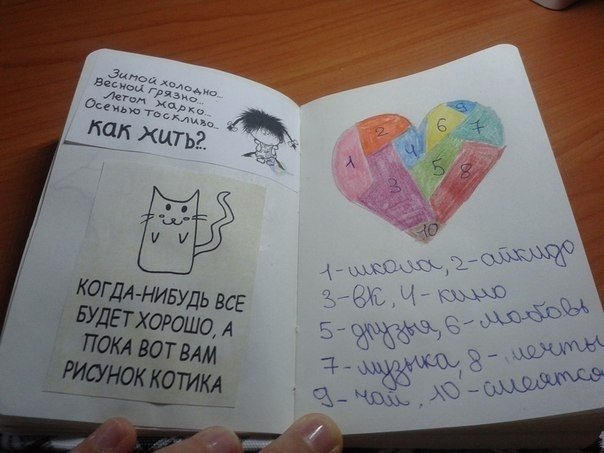 Зимой холодно...
Весной грязно...
Летом жарко...
Осенью тоскливо..
КАК ЖИТЬ?..
КОГДА-НИБУДЬ ВСЕ
БУДЕТ ХОРОШО, А
ПОКА ВОТ ВАМ
РИСУНОК КОТИКА
9
2
6
7
1
4
5
3
8
10
1-школа, 2-айкидо
3-вк, 4-кино
5-друзья, 6-любовь
7-музыка, 8-мечты
9-чай, 10-смеятся